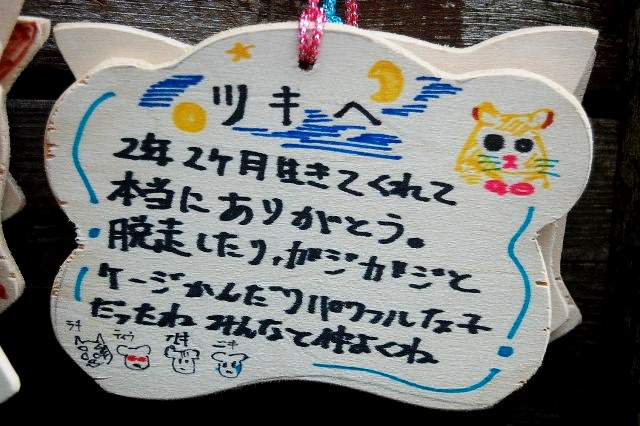 ツキへ
2年2ケ月生きてくれて
本当にありがとう。
脱走したり、ガジガジと
ケージかんだりパワフルな子
だったね みんなと仲よくね
ラキ ティウ ルキ ニキ